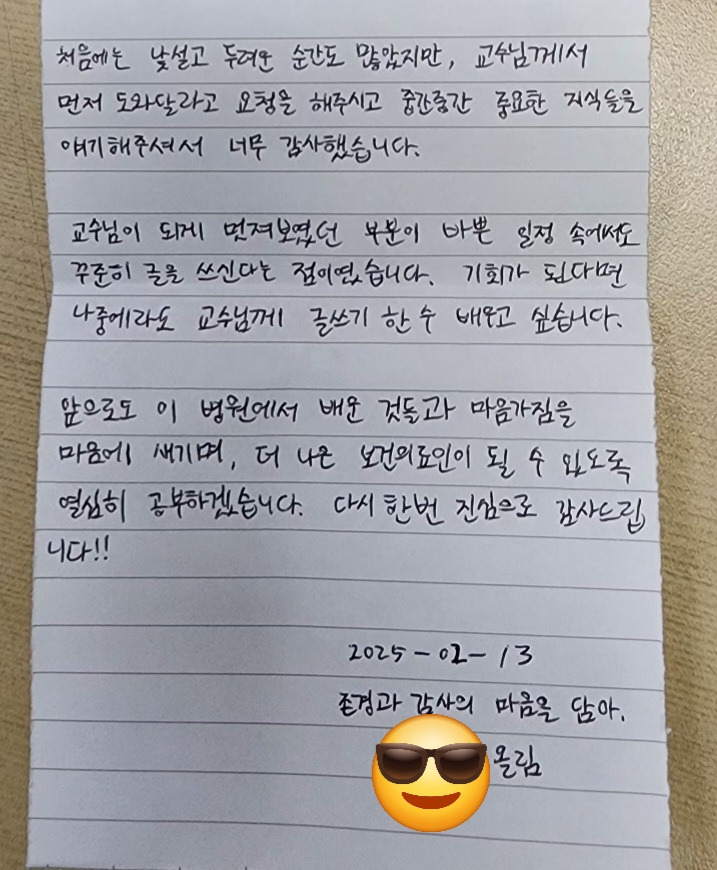 처음에는 낯설고 두려운 순간도 많았지만, 교수님께서
먼저 도와달라고 요청을 해주시고 중간중간 중요한 지식들을
얘기해주셔서 너무 감사했습니다.
교수님이 되게 멋져보였던 부분이 바쁜 일정 속에서도
꾸준히 글을 쓰신다는 점이였습니다. 기회가 된다면
나중에라도 교수님께 글쓰기 한 수 배우고 싶습니다.
앞으로도 이 병원에서 배운 것들과 마음가짐을
마음에 새기며, 더 나은 보건의료인이 될 수 있도록
열심히 공부하겠습니다. 다시 한번 진심으로 감사드립
니다!!
2025-02-13
존경과 감사의 마음을 담아.
올림